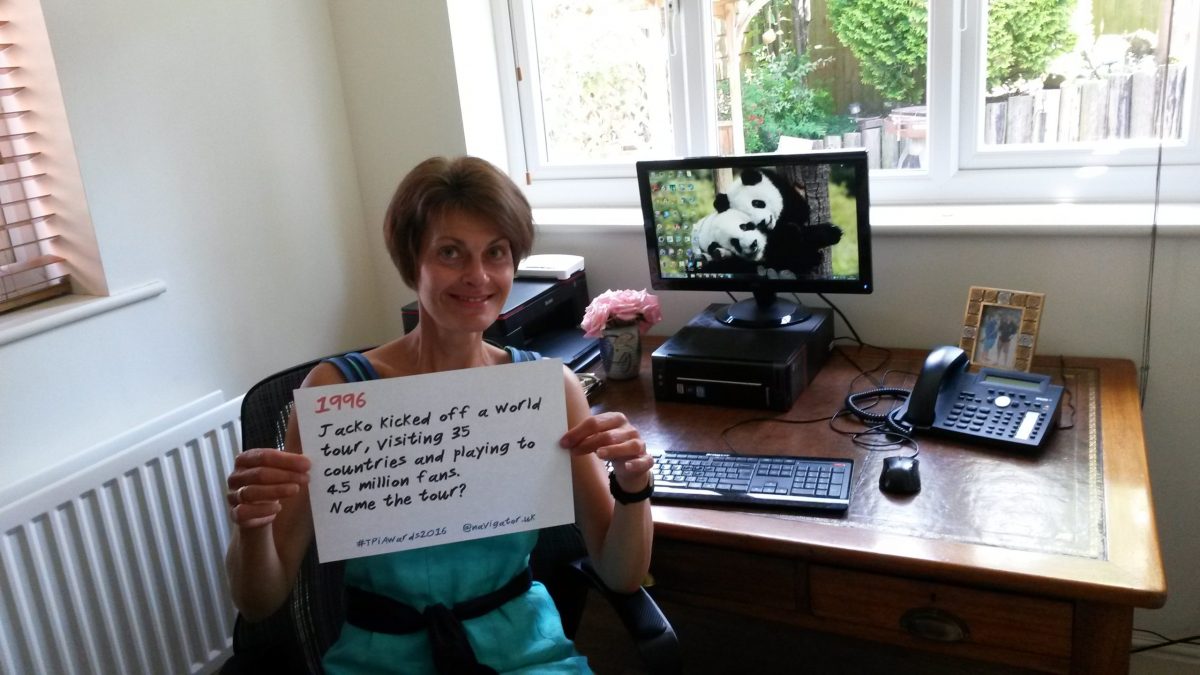 1996
Jacko kicked off a world
tour, visiting 35
countries and playing to
4.5 million fans.
Name the tour?
#TPiAwards2016 @navigator.uk